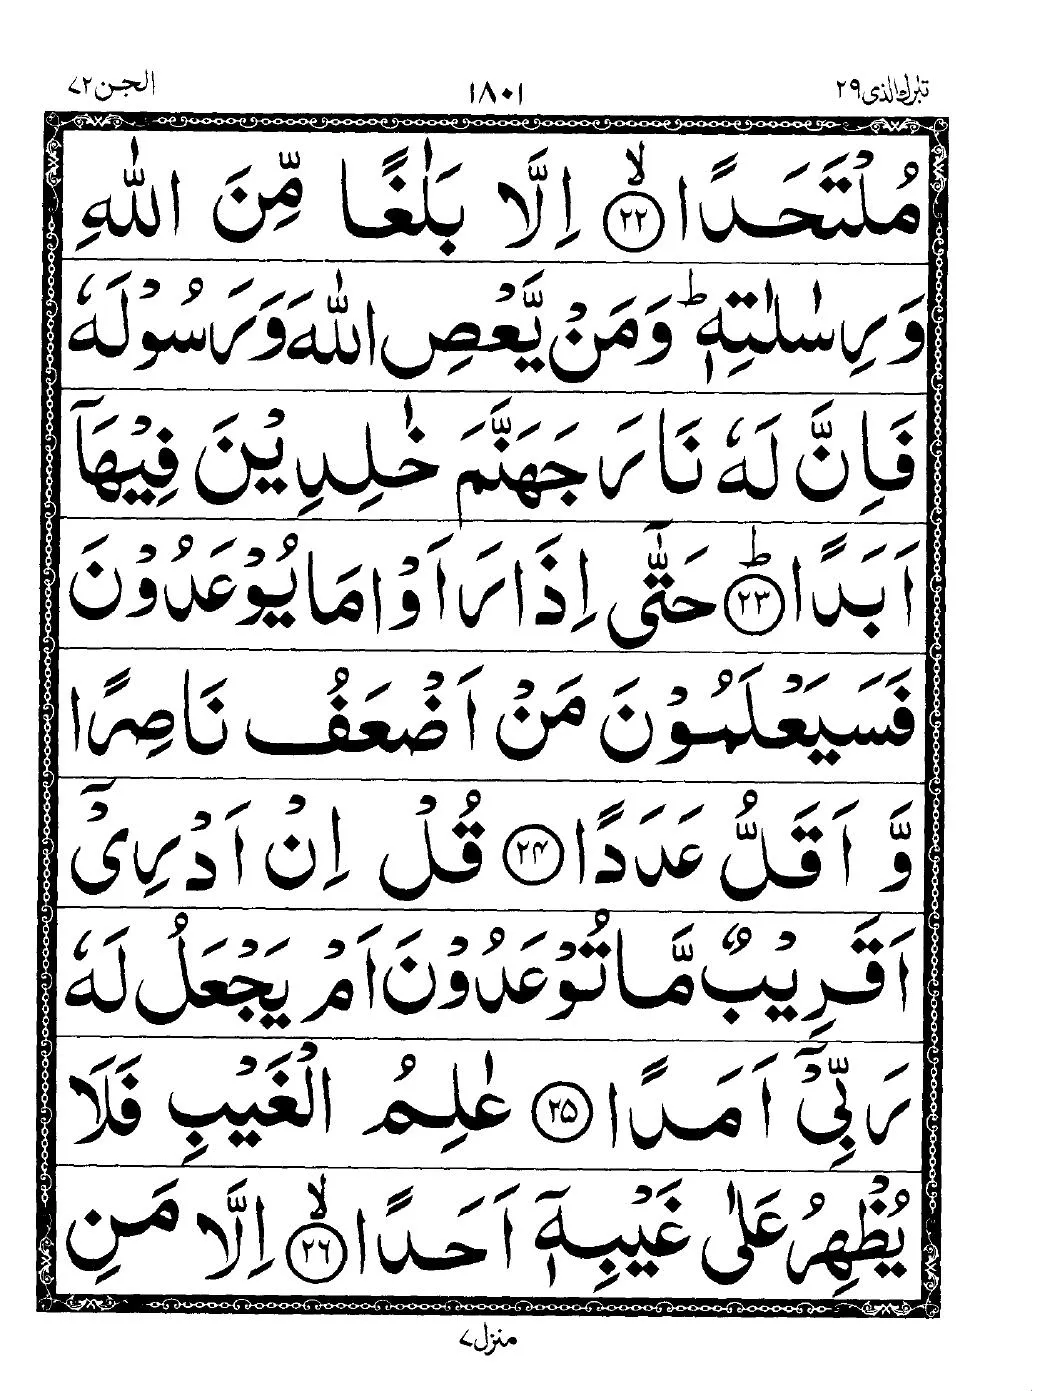 تبٰرك الذی ۲۹ ۱۸۰۱ الجن ۷۲
مُلْتَحَدًا ﴿۲۲﴾ۙ اِلَّا بَلٰغًا مِّنَ اللّٰهِ
وَرِسٰلٰتِهٖؕ وَمَنْ يَّعْصِ اللّٰهَ وَرَسُوْلَهٗ
فَاِنَّ لَهٗ نَارَ جَهَنَّمَ خٰلِدِيْنَ فِيْهَآ
اَبَدًا ﴿۲۳﴾ؕ حَتّٰٓى اِذَا رَاَوْا مَا يُوْعَدُوْنَ
فَسَيَعْلَمُوْنَ مَنْ اَضْعَفُ نَاصِرًا
وَّ اَقَلُّ عَدَدًا ﴿۲۴﴾ قُلْ اِنْ اَدْرِىْٓ
اَقَرِيْبٌ مَّا تُوْعَدُوْنَ اَمْ يَجْعَلُ لَهٗ
رَبِّىْٓ اَمَدًا ﴿۲۵﴾ عٰلِمُ الْغَيْبِ فَلَا
يُظْهِرُ عَلٰى غَيْبِهٖٓ اَحَدًا ﴿۲۶﴾ۙ اِلَّا مَنِ
منزل ۷